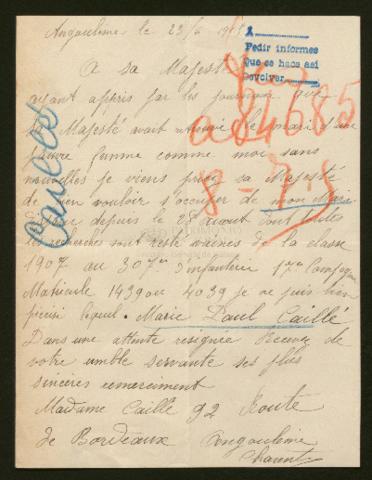 Angoulême le 29/6 191
A sa Majesté
ayant appris par les journaux que
Sa Majesté avait retrouvé le mari d'une
pauvre femme comme moi sans
nouvelles je viens priez sa Majesté
de bien vouloir s'occuper de mon Mari
disparu depuis le 28 aout dont toutes
les recherches sont resté vaines de la classe
1907 au 307e d'infanterie 17e Compagnie
Matricule 1439 ou 4039 je ne puis bien
préciser lequel. Marie Paul Caillé
Dans une attente resignée Recevez de
votre umble servante ses plus
sincères remerciement
Madame Caillé 92 Route
de Bordeaux Angoulême
Charente
A
Pedir informes
Que se hace así
Devolver
Caillé
84685
8-7-8